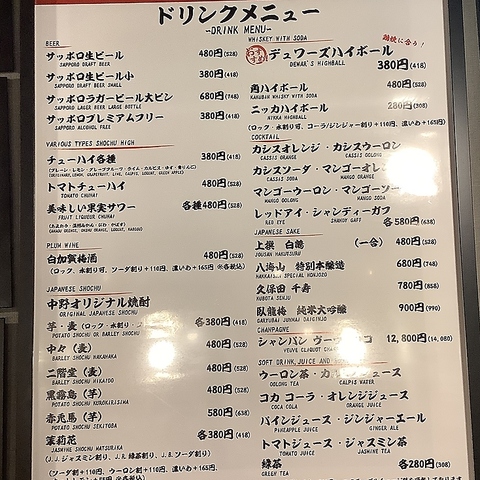 ドリンクメニュー
-DRINK MENU-
BEER
サッポロ生ビール 480円(528)
SAPPORO DRAFT BEER
サッポロ生ビール小 380円(418)
SAPPORO DRAFT BEER SMALL
サッポロラガービール大ビン 680円(748)
SAPPORO LAGER BEER LARGE BOTTLE
サッポロプレミアムフリー 380円(418)
SAPPORO ALCOHOL FREE
VARIOUS TYPES SHOCHU HIGH
チューハイ各種 380円(418)
トマトチューハイ 480円(528)
TOMATO CHUHAI
美味しい果実サワー 各種480円(528)
FRUIT LIQUEUR CHUHAI
PLUM WINE
白加賀梅酒 480円(528)
(ロック、水割り可、ソーダ割り+110円、濃いめ+165円 ※各税込)
JAPANESE SHOCHU
中野オリジナル焼酎
ORIGINAL JAPANESE SHOCHU
芋・麦(ロック・水割り・ 各380円(418)
POTATO SHOCHU OR BARLEY SHOCHU
中々(麦) 480円(528)
BARLEY SHOCHU NAKANAKA
二階堂(麦) 480円(528)
BARLEY SHOCHU NIKAIDO
黒霧島(芋) 480円(528)
POTATO SHOCHU KUROKIRISIMA
赤兎馬(芋) 580円(638)
POTATO SHOCHU SEKITOBA
茉莉花 各380円(418)
JASMINE SHOCHU MATSURIKA
(J.J.ジャスミン割り、J.R.緑茶割り、J.S.ソーダ割り)
(ソーダ割+110円、ウーロン割+110円、濃いめ+165円、
WHISKEY WITH SODA
おすすめ デュワーズハイボール
DEWAR'S HIGHBALL
380円(418)
角ハイボール 480円(528)
KAKUBIN WHISKY WITH SODA
ニッカハイボール 280円(308)
NIKKA HIGHBALL
(ロック、水割り可、コーラ/ジンジャー割り+110円、濃いめ+165円)
COCKTAIL
カシスオレンジ・カシスウーロン
CASSIS ORANGE CASSIS OOLONG
カシスソーダ・マンゴーオレンジ
CASSIS SODA MANGO ORANGE
マンゴーウーロン・マンゴーソーダ
MANGO OOLONG MANGO SODA
レッドアイ・シャンディーガフ
RED EYE SHANDY GAFF
各580円(638)
JAPANESE SAKE
上撰 白鶴 (一合) 480円(528)
JOUSAN HAKUTSURU
八海山 特別本醸造 680円(748)
HAKKAISAN SPECIAL HONJOZO
久保田 千寿 780円(858)
KUBOTA SENJU
臥龍梅 純米大吟醸 900円(990)
GARYUBAI JUNMAI DAIGINJO
CHANPAGNE
シャンパン ヴーヴ 12,800円(14,080)
VEUVE CLIQUOT
SOFT DRINK, JUICE AND
ウーロン茶・カルピスジュース
OOLONG TEA CALPIS WATER
コカ コーラ・オレンジジュース
COCA COLA ORANGE JUICE
パインジュース・ジンジャーエール
PINEAPPLE JUICE GINGER ALE
トマトジュース・ジャスミン茶
TOMATO JUICE JASMINE TEA
緑茶 各280円(308)
GREEN TEA